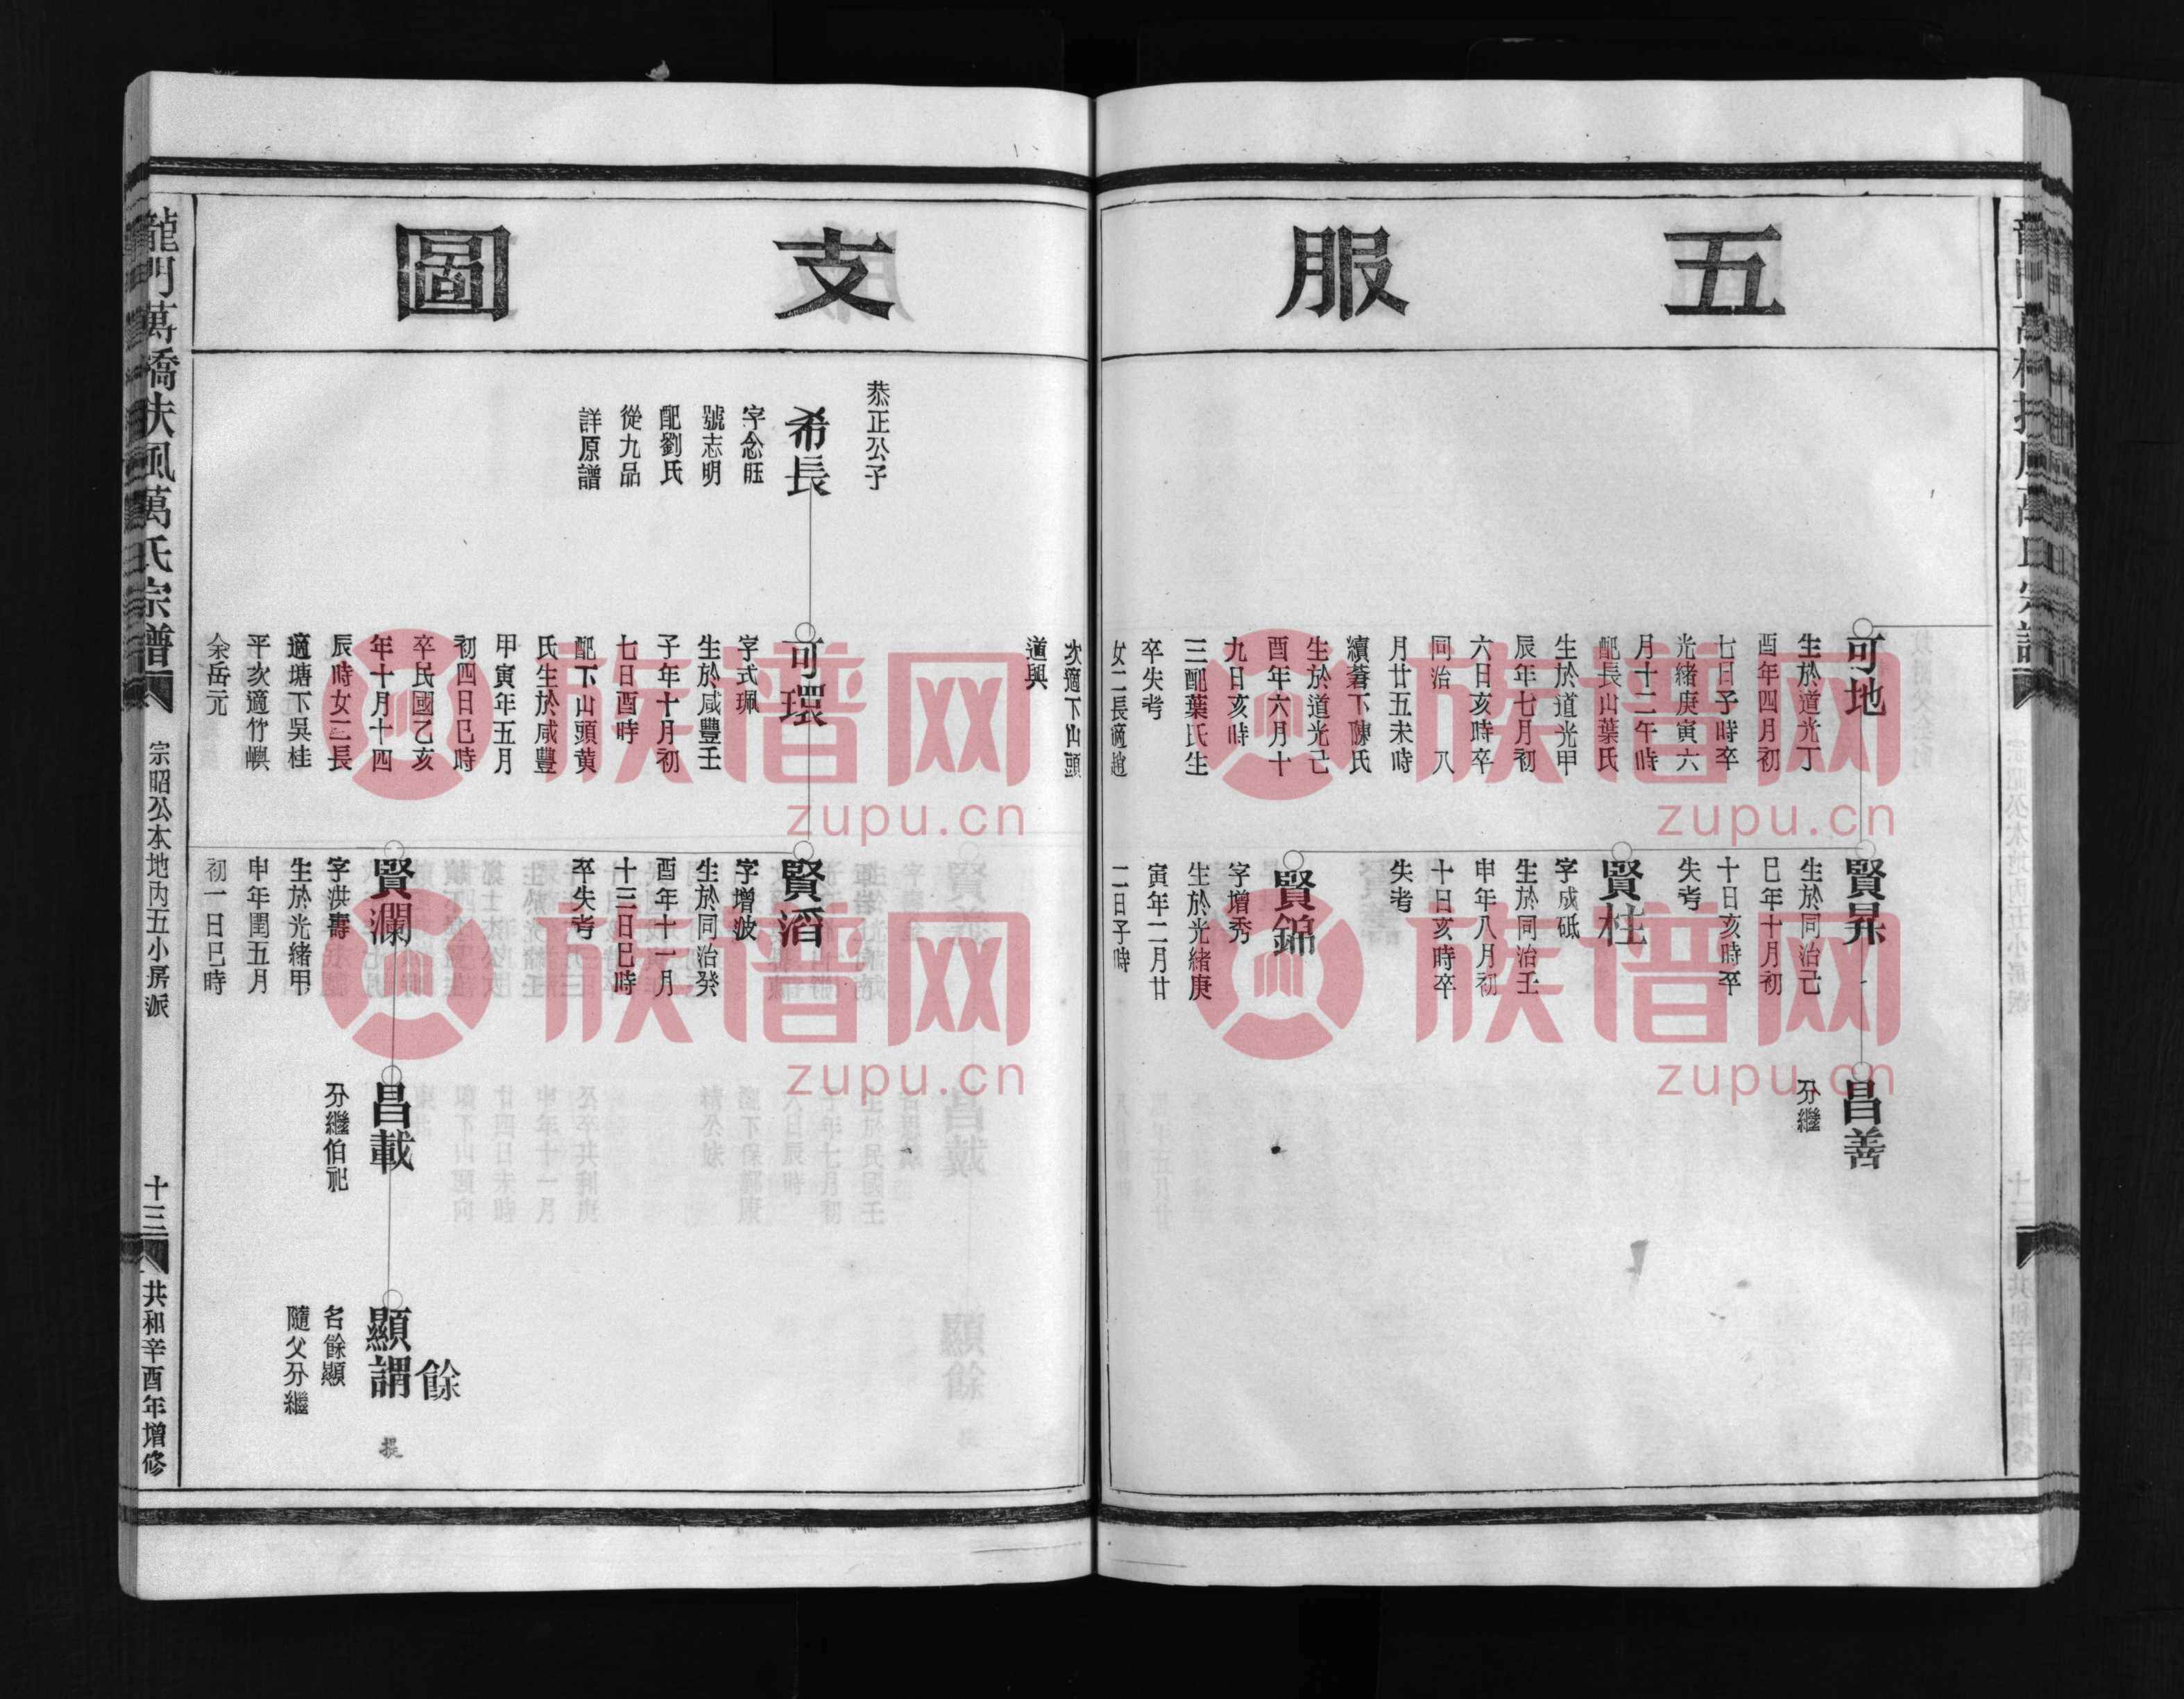 五服
可地
生於道光丁
酉年四月初
七日子時卒
光緒庚寅六
月十二午時
配長山葉氏
生於道光甲
辰年七月初
六日亥時卒
同治 八
月廿五未時
續蒼下陳氏
生於道光己
酉年六月十
九日亥時
三配葉氏生
卒失考
女二長適趙
賢昇
生於同治己
巳年十月初
十日亥時卒
失考
賢柱
字成砥
生於同治壬
申年八月初
十日亥時卒
失考
賢錦
字增秀
生於光緒庚
寅年二月廿
二日子時
昌善
分繼
支圖
次適下山頭
道興
恭正公子
希長
字念旺
號志明
配劉氏
從九品
詳原譜
可環
字式珮
生於咸豐壬
子年十月初
七日酉時
配下山頭黄
氏生於咸豐
甲寅年五月
初四日巳時
卒民國乙亥
年十月十四
辰時女三長
適塘下吳桂
平次適竹嶼
余岳元
賢滔
字增波
生於同治癸
酉年十一月
十三日巳時
卒失考
賢瀾
字洪壽
生於光緒甲
申年閏五月
初一日巳時
昌載
分繼伯祀
餘
顯謂
名餘顯
隨父分繼
提
龍門萬橋扶風萬氏宗譜
宗昭公本地丙五小房派
十三
共和辛酉年增修
族谱网
zupu.cn
族谱网
zupu.cn
族谱网
zupu.cn
族谱网
zupu.cn